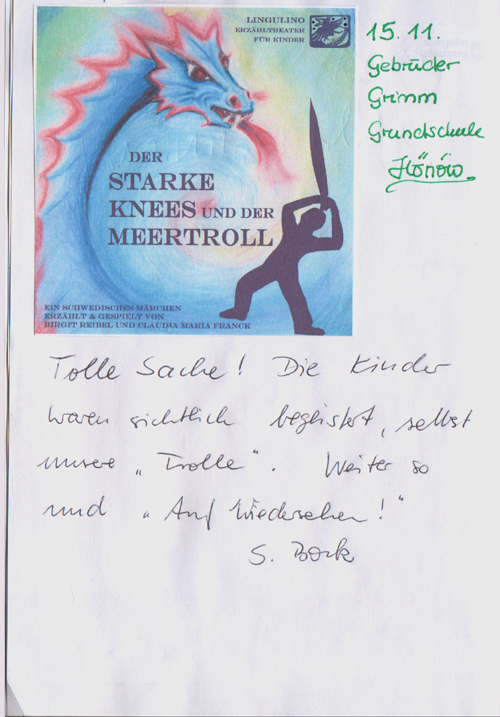 LINGULINO
ERZÄHLTHEATER
FÜR KINDER
15.11.
Gebrüder
Grimm
Grundschule
Hönow
DER
STARKE
KNEES UND DER
MEERTROLL
EIN SCHWEDISCHES MÄRCHEN
ERZÄHLT & GESPIELT VON
BIRGIT REIBEL UND CLAUDIA MARIA FRANCK
Tolle Sache! Die Kinder
waren sichtlich begeistert, selbst
unsere „Trolle“. Weiter so
und „Auf Wiedersehen!“
S. Bock